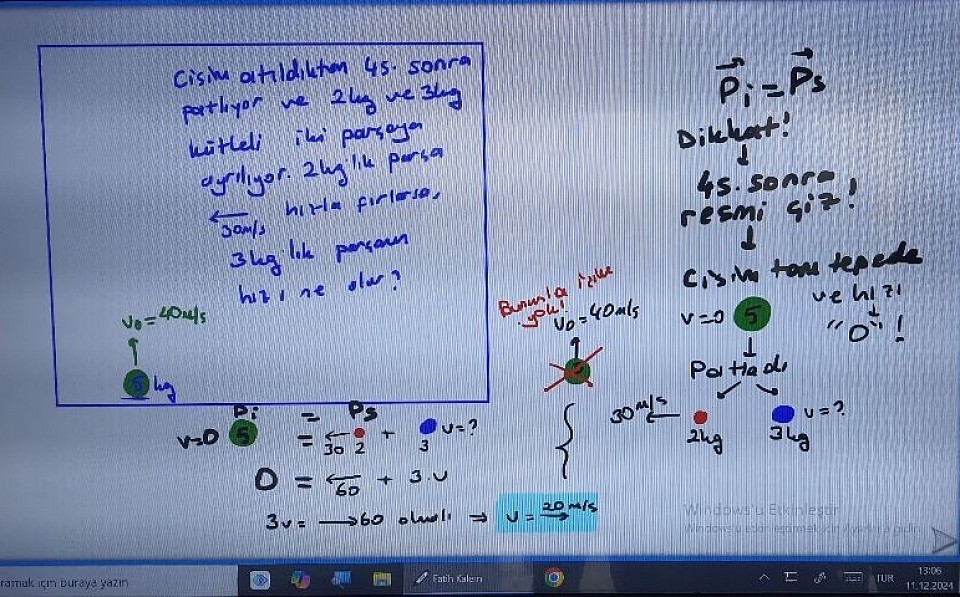 Cisim atıldıktan 4s. sonra
patlıyor ve 2kg ve 3kg
kütleli iki parçaya
ayrılıyor. 2kg'lık parça
← hızla fırlarsa,
30m/s
3kg'lık parçanın
hızı ne olur?
V₀=40m/s
5 kg
Pi = Ps
Dikkat!
4s. sonra
resmi çiz!
Cisim tam tepede
ve hızı
"0"!
V=0 5
Patladı
30m/s ←
2kg
3kg
V=?
Bununla işim
yok!
V₀=40m/s
5
Pi = Ps
V=0 5 = ← 2 + 3 V=?
30
0 = ← + 3.V
60
3V = →60 olmalı ⇒ V = 20 m/s →
Windows'u Etkinleştir
ramak için buraya yazın
Fatih Kalem
TUR
13:06
11.12.2024